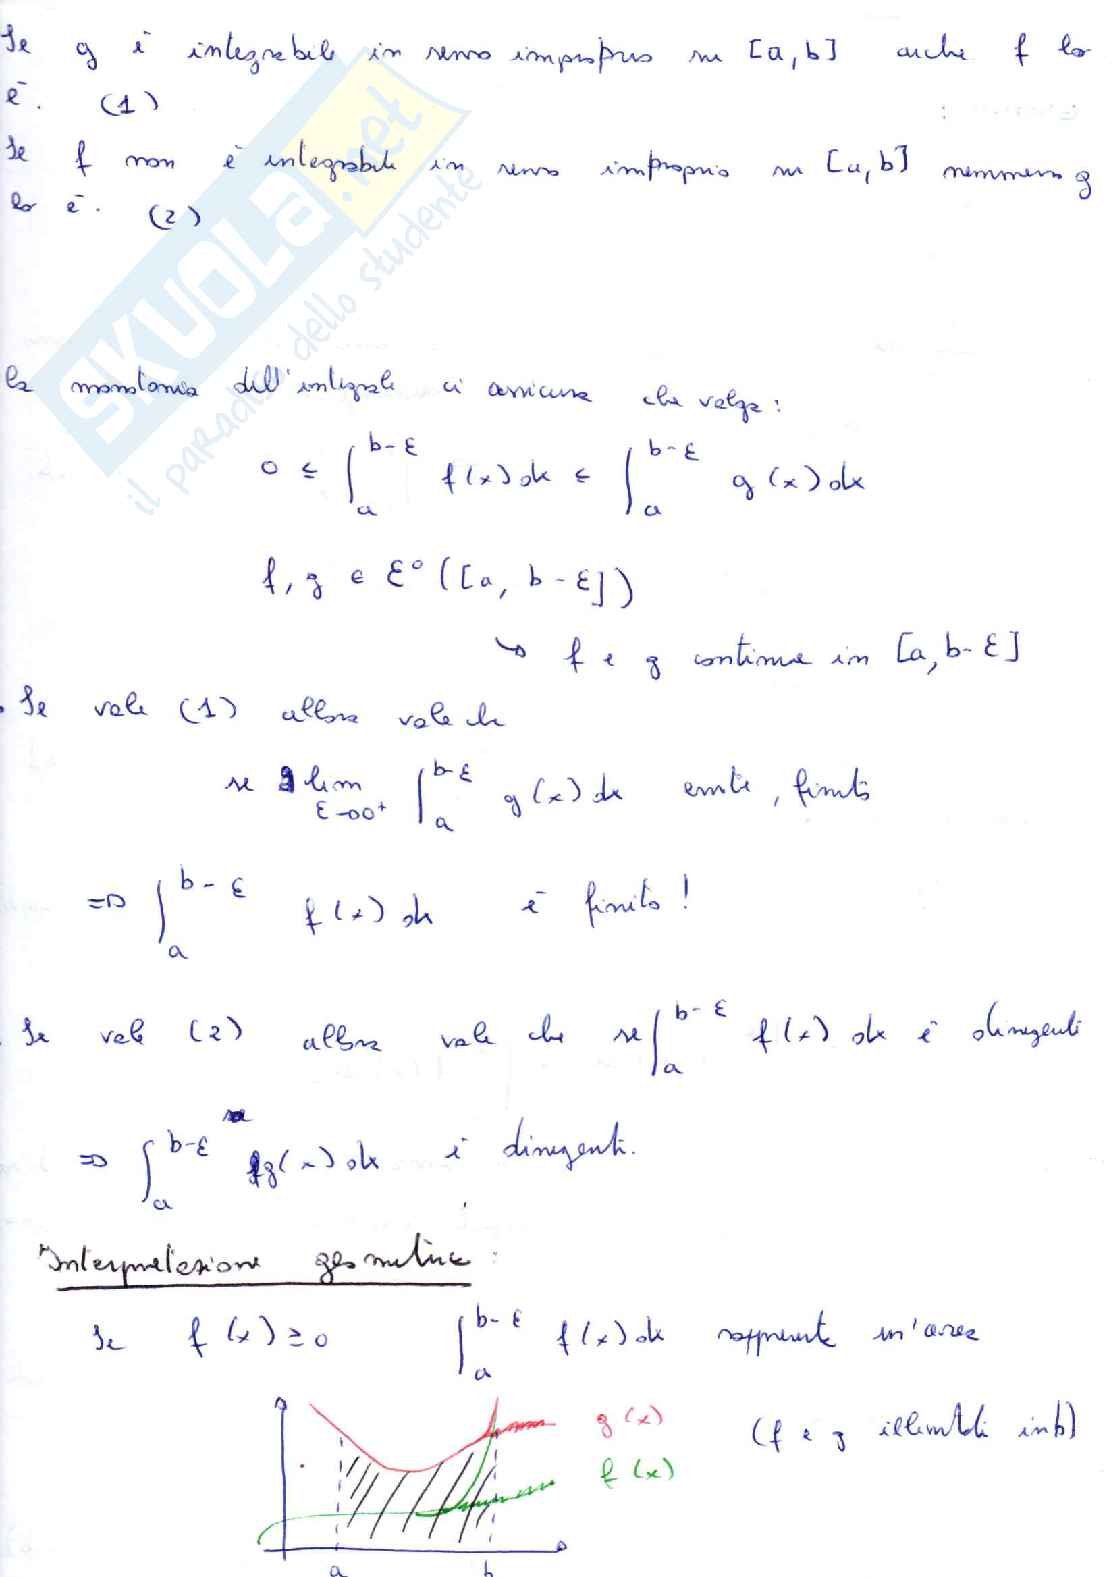 Se g è integrabile in senso improprio su [a,b] anche f lo
è. (1)
Se f non è integrabile in senso improprio su [a,b] nemmeno g
lo è. (2)
SKUOLA.net
il paradiso dello studente
la monotonia dell'integrale ci assicura che valga:
0 ≤ ∫_a^{b-ε} f(x)dx ≤ ∫_a^{b-ε} g(x)dx
f, g ∈ ℰ°([a, b-ε])
↳ f e g continue in [a, b-ε]
. Se vale (1) allora vale che
se ∃ lim_{ε→0^+} ∫_a^{b-ε} g(x)dx esiste, finito
=> ∫_a^{b-ε} f(x)dx è finito!
. Se vale (2) allora vale che se ∫_a^{b-ε} f(x)dx è divergente
=> ∫_a^{b-ε} g(x)dx è divergente.
Interpretazione geometrica:
Se f(x)≥0 ∫_a^{b-ε} f(x)dx rappresenta un'area
g(x)
(f e g illimitati in b)
f(x)
a b